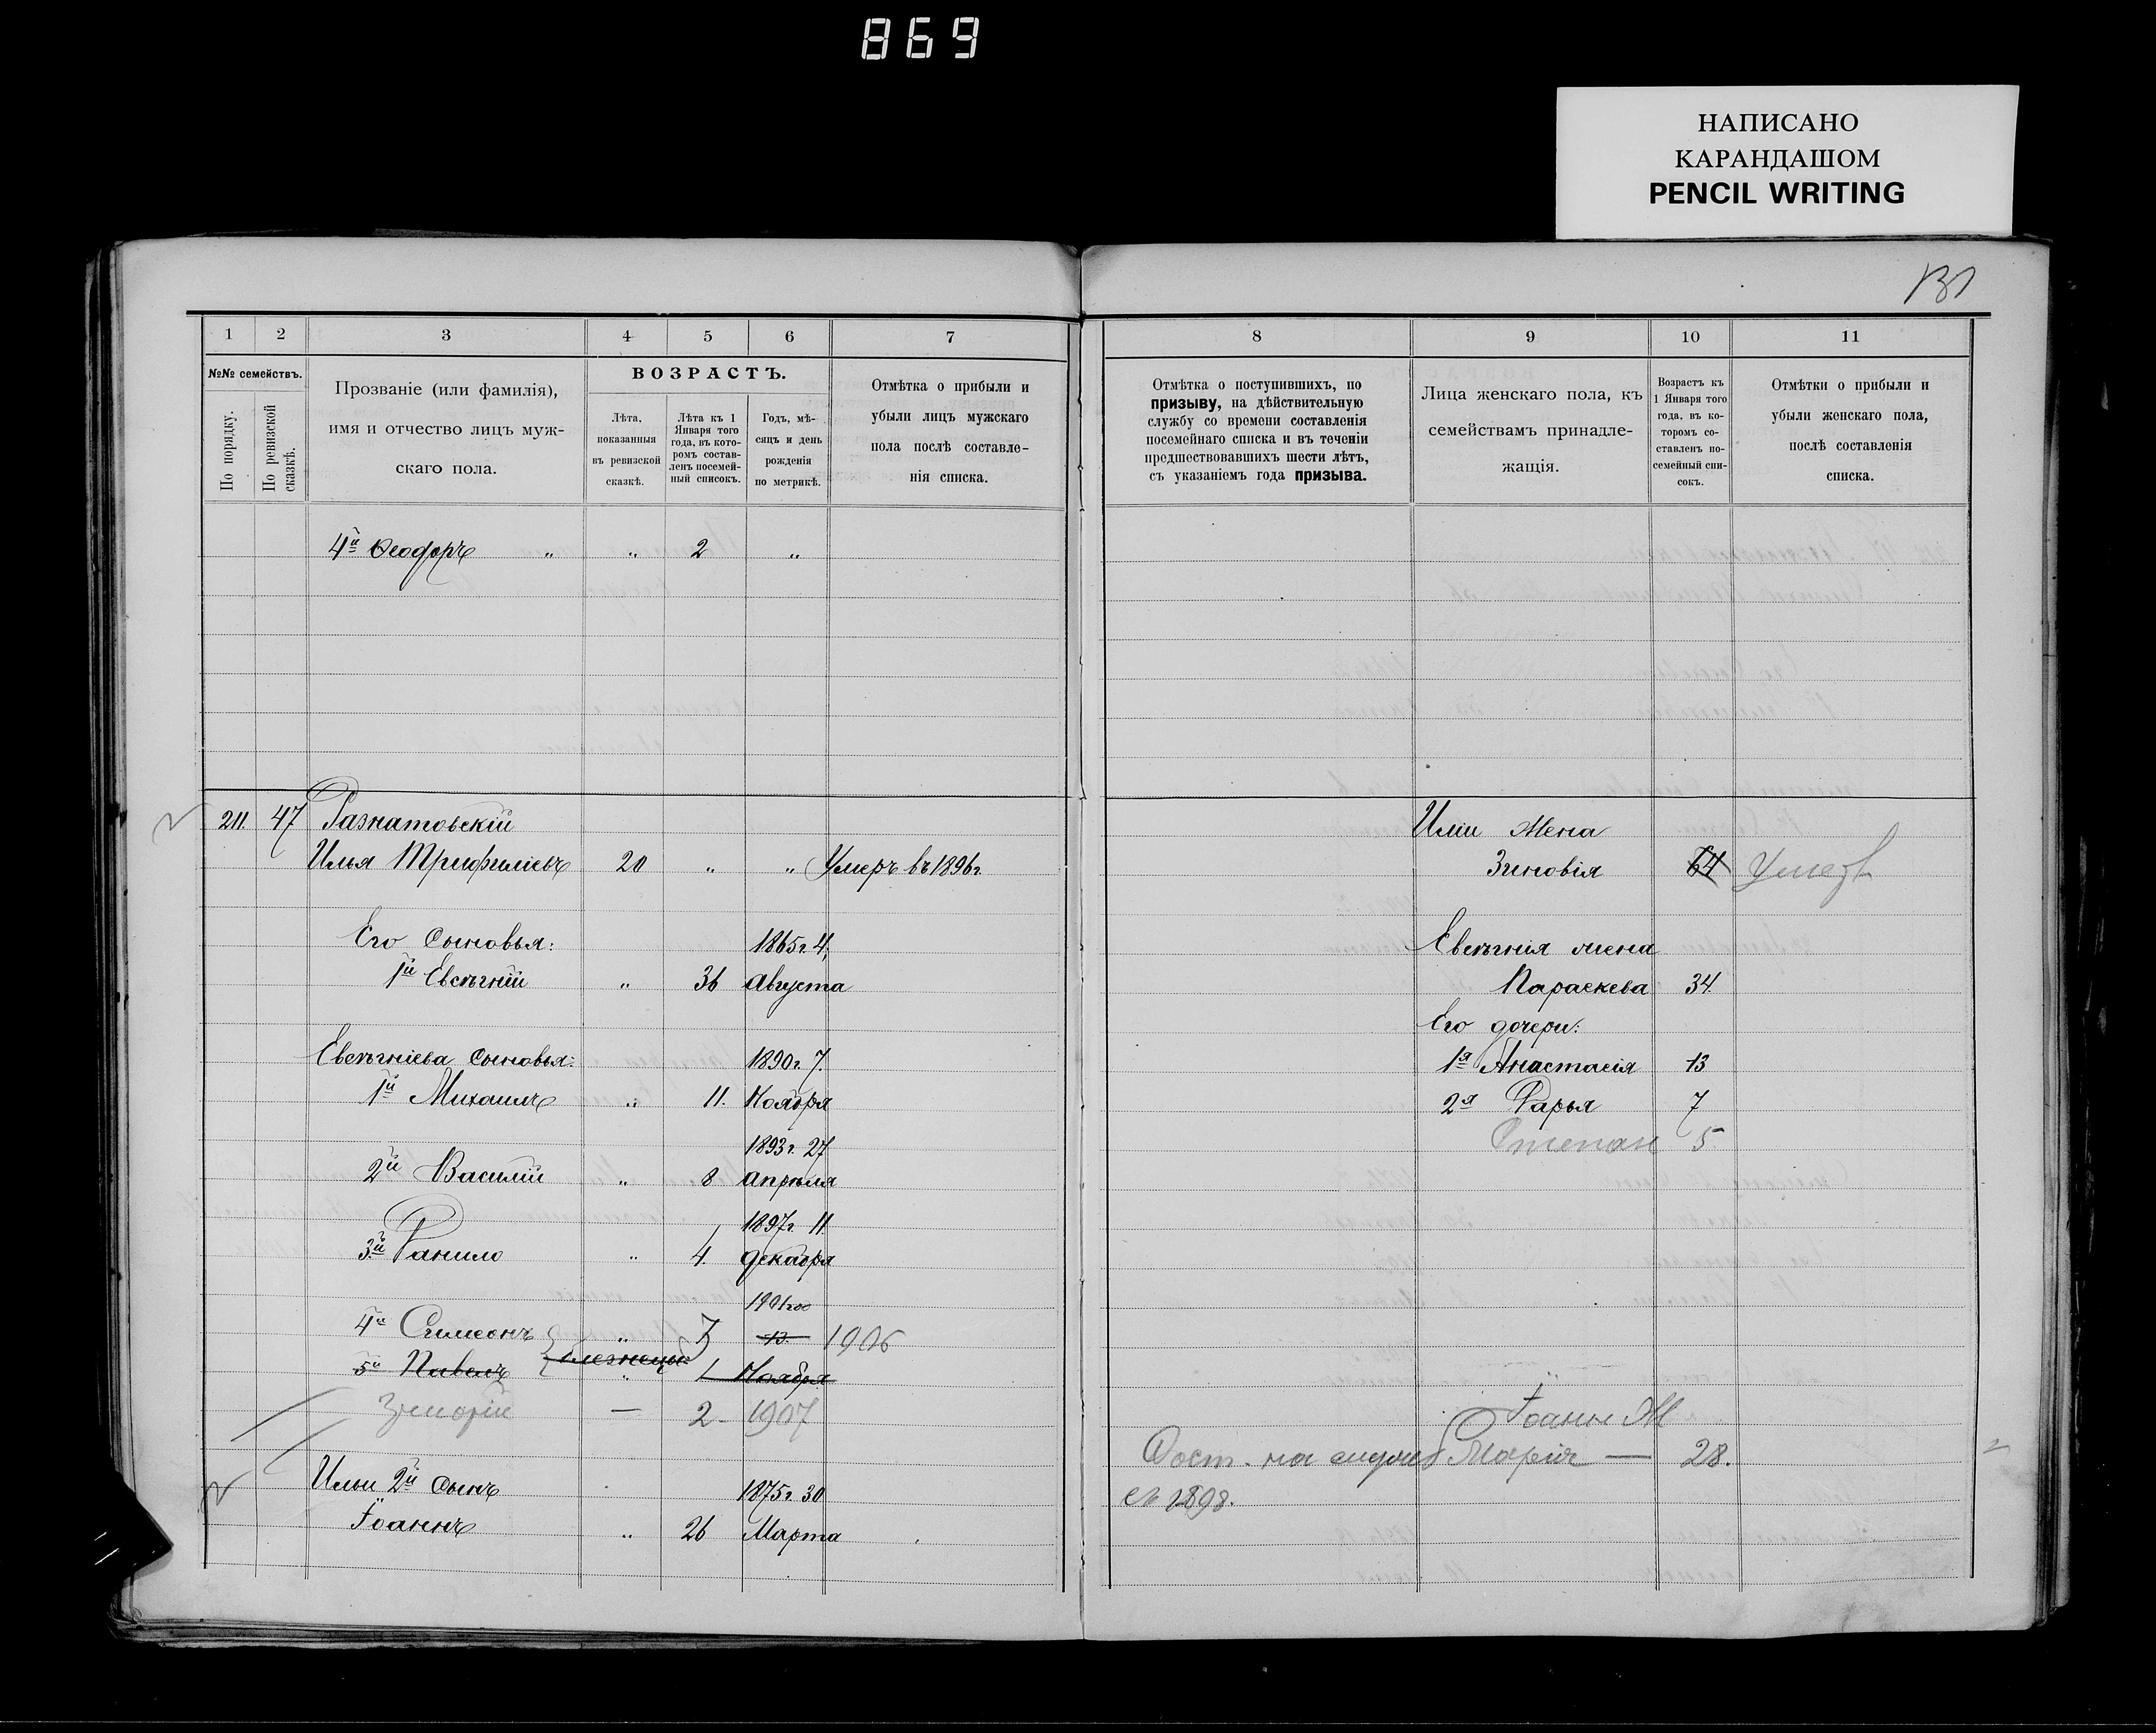 869
НАПИСАНО
КАРАНДАШОМ
PENCIL WRITING
131
1 2 3 4 5 6 7
№№ семействъ.
По порядку.
По ревизской сказкѣ.
Прозваніе (или фамилія),
имя и отчество лицъ муж-
скаго пола.
ВОЗРАСТЪ.
Лѣта,
показанныя
въ ревизской
сказкѣ.
Лѣта къ 1
Января того
года, въ кото-
ромъ состав-
ленъ посемей-
ный списокъ.
Годъ, мѣ-
сяцъ и день
рожденія
по метрикѣ.
Отмѣтка о прибыли и
убыли лицъ мужскаго
пола послѣ составле-
нія списка.
8 9 10 11
Отмѣтка о поступившихъ, по
призыву, на дѣйствительную
службу со времени составленія
посемейнаго списка и въ теченіи
предшествовавшихъ шести лѣтъ,
съ указаніемъ года призыва.
Лица женскаго пола, къ
семействамъ принадле-
жащія.
Возрастъ къ
1 Января того
года, въ ко-
торомъ со-
ставленъ по-
семейный спи-
сокъ.
Отмѣтки о прибыли и
убыли женскаго пола,
послѣ составленія
списка.
4й Ѳеодоръ " " 2 "
211. 47 Разнатовскій
Илья Трифиліевъ 20 " " Умеръ въ 1896г.
Его сыновья: 1865г. 4,
1й Евсѣгній " 36 Августа
Евсѣгніева сыновья: 1890г. 7.
1й Михаилъ " 11. Ноября
1893г. 27
2й Василій " 8 Апрѣля
1897г. 11
3й Данило " 4. Декабря
1901го
4й Симеонъ " 7 13. 1906
5й Павелъ близнецы " 1 Ноября
— 2 - 1907
Ильи 2й сынъ 1875г. 30
Іоаннъ " 26 Марта
Иліи жена
Зиновія 64
Евсѣгнія жена
Параскева 34.
Его дочери:
1я Анастасія 13
2я Дарья 7
Степан 5.
Іоанн Ж
Сост. на службѣ Марія — 28.
съ 1898.